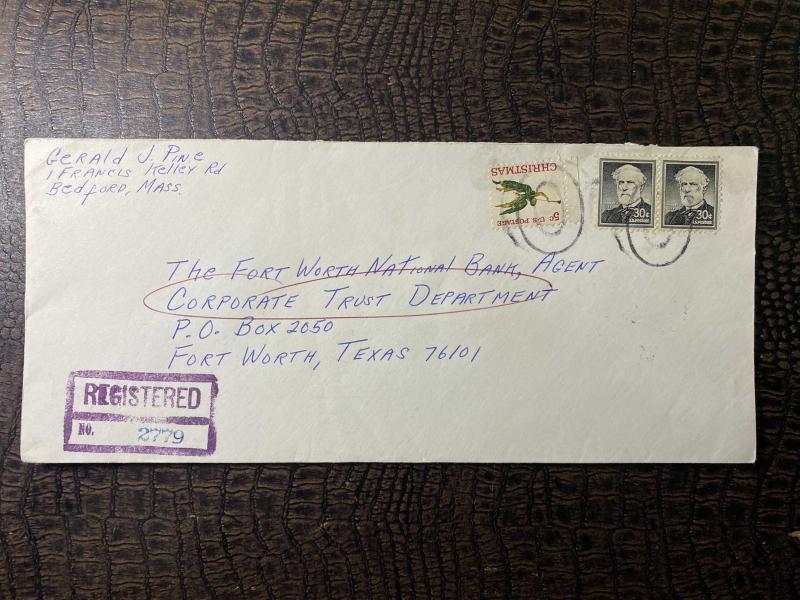 Gerald J. Pine
1 Francis Kelley Rd
Bedford, Mass.
CHRISTMAS
5c U.S. POSTAGE
30¢
U.S. POSTAGE
30¢
U.S. POSTAGE
The Fort Worth National Bank, Agent
Corporate Trust Department
P.O. Box 2050
Fort Worth, Texas 76101
REGISTERED
NO. 2779